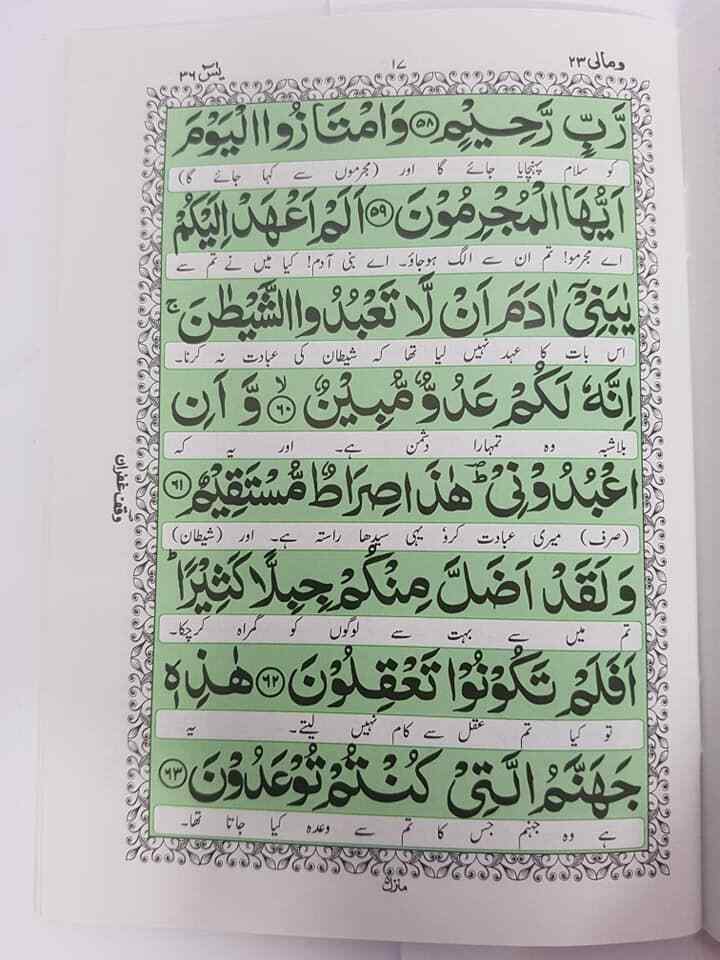 ومالی ۲۳ ۱۷ یٰسٓ ۳۶
رَّبٍّ رَّحِیْمٍ ﴿۵۸﴾ وَامْتَازُوا الْیَوْمَ
کو سلام پہنچایا جائے گا اور (مجرموں سے کہا جائے گا)
اَیُّهَا الْمُجْرِمُوْنَ ﴿۵۹﴾ اَلَمْ اَعْهَدْ اِلَیْكُمْ
اے مجرمو! تم ان سے الگ ہوجاؤ۔ اے بنی آدم! کیا میں نے تم سے
یٰبَنِیْۤ اٰدَمَ اَنْ لَّا تَعْبُدُوا الشَّیْطٰنَ ۚ
اس بات کا عہد نہیں لیا تھا کہ شیطان کی عبادت نہ کرنا۔
اِنَّهٗ لَكُمْ عَدُوٌّ مُّبِیْنٌ ﴿۶۰﴾ۙ وَّ اَنِ
بلاشبہ وہ تمہارا دشمن ہے۔ اور یہ کہ
اعْبُدُوْنِیْ ؕ هٰذَا صِرَاطٌ مُّسْتَقِیْمٌ ﴿۶۱﴾
(صرف) میری عبادت کرو، یہی سیدھا راستہ ہے۔ اور (شیطان)
وقف غفران
وَ لَقَدْ اَضَلَّ مِنْكُمْ جِبِلًّا كَثِیْرًا ؕ
تم میں سے بہت سے لوگوں کو گمراہ کرچکا۔
اَفَلَمْ تَكُوْنُوْا تَعْقِلُوْنَ ﴿۶۲﴾ هٰذِهٖ
تو کیا تم عقل سے کام نہیں لیتے۔ یہ
جَهَنَّمُ الَّتِیْ كُنْتُمْ تُوْعَدُوْنَ ﴿۶۳﴾
ہے وہ جہنم جس کا تم سے وعدہ کیا جاتا تھا۔
منزل ۵